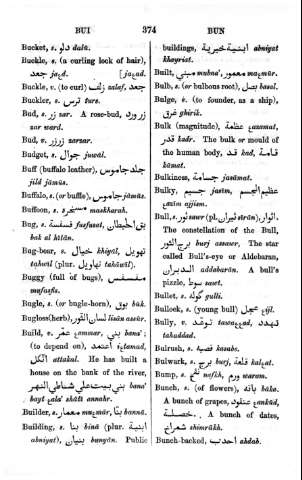 BUI 374 BUN
Bucket, s. دلو dalū.
Buckle, s. (a curling lock of hair),
جعد jaƹd. [jaƹad.
Buckle, v. (to curl) زلف
Buckler, s. ترس turs.
Bud, s. زر zar. A rose-bud, زر ورد
zar ward.
Bud, v. زرزر zarzar.
Budget, s. جوال juwāl.
Buff (buffalo leather),
جلد جاموس jild jāmūs.
Buffalo, s. (or buffle), جاموس jāmūs.
Buffoon, s. مسخره maskharah.
Bug, s. فسفس fasfas;
بق الحيطان bak al hītān.
Bug-bear, s. خيال khiyāl, تهويل
tahwīl (plur. تهاويل tahāwīl).
Buggy (full of bugs), مفسفس
mufasfis.
Bugle, s. (or bugle-horn), بوق būk.
Bugloss (herb), لسان الثور
Build, v. بنى bana';
(to depend on),
اتكل attakal. He has built a
house on the bank of the river,
بنى بيت على شاطي النهر bana'
bayt ƹala' shātī annahr.
Builder, s. معمار بنا bannā.
Building, s. بنا binā (plur. ابنية
abniyat), بنيان bunyān. Public
buildings, ابنية خيرية abniyat
khayriat.
Built, مبنى mubna', معمور maƹmūr.
Bulb, s. (or bulbous root), بصل basal.
Bulge, v. (to founder, as a ship),
غرق ghirik.
Bulk (magnitude), عظمة ƹazamat,
قدر kadr. The bulk or mould of
the human body, قد kad, قامة
kāmat.
Bulkiness, جسامة jasāmat.
Bulky, جسيم jasīm, عظيم الجسم
ƹazīm ajjism.
Bull, s. ثور sawr (pl. ثيران
The constellation of the Bull,
برج الثور burj assawr. The star
called Bull's-eye or Aldebaran,
الدبران addabarān. A bull's
pizzle, سوط sawt.
Bullet, s. گوله gulli.
Bullock, s. (young bull) عجل ƹijl.
Bully, v. توعد tawaƹƹad, تهدد
tahaddad.
Bulrush, s. قصبة kasabe.
Bulwark, s. برج burj, قلعة kalƹat.
Bump, s. نفخ nafkh, ورم waram.
Bunch, s. (of flowers), باقة bāka.
A bunch of grapes, عنقود ƹankūd,
خصلة. A bunch of dates,
شمراخ shimrākh.
Bunch-backed, احدب ahdab.